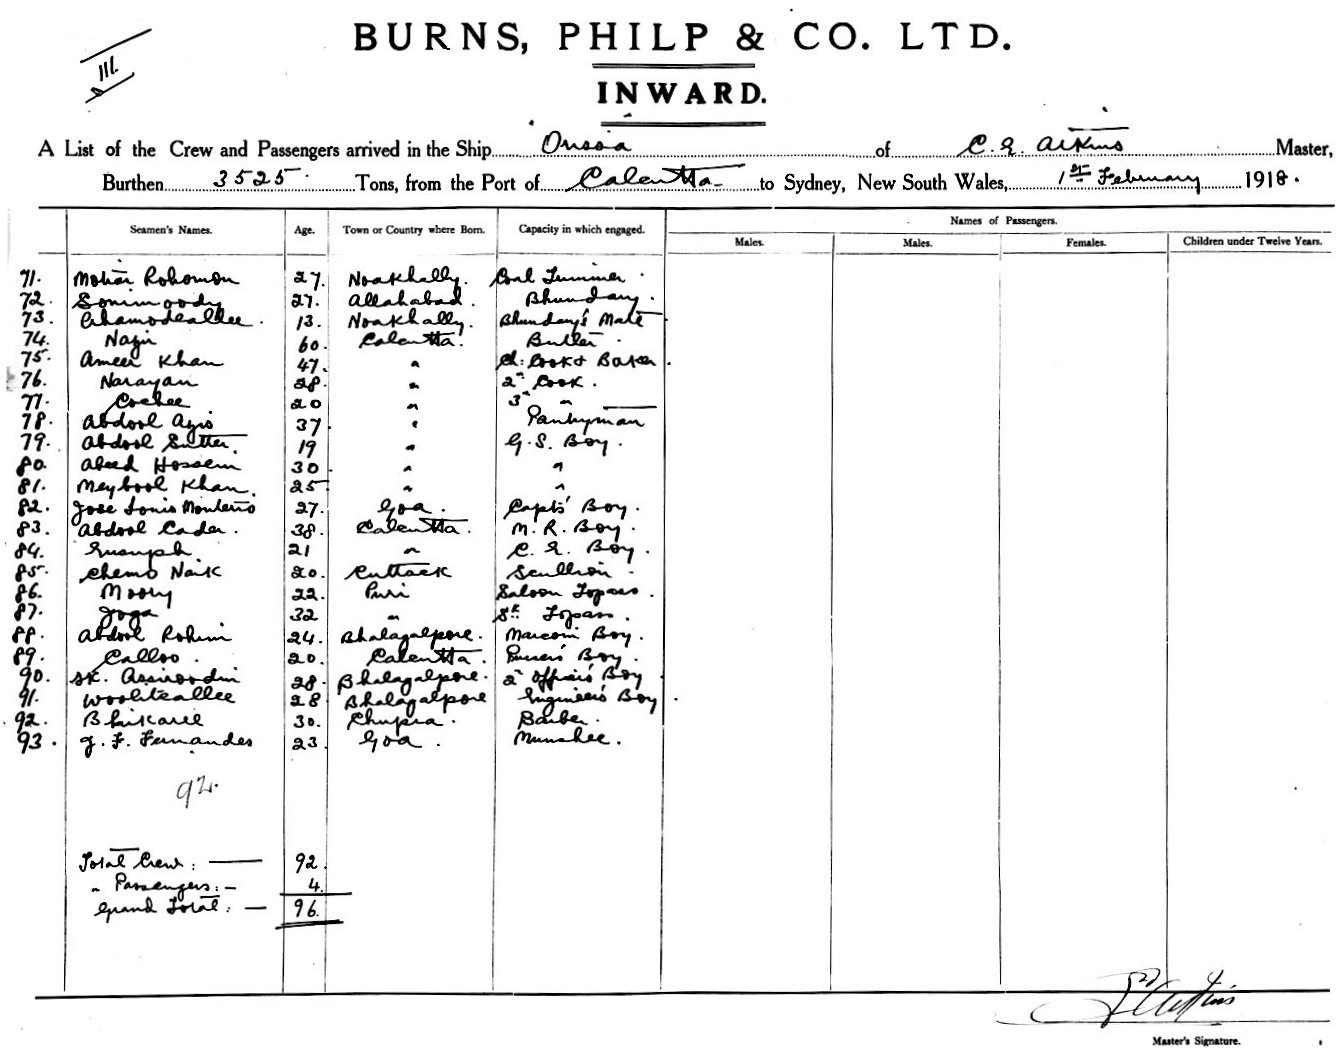 III.
BURNS, PHILP & CO. LTD.
INWARD.
A List of the Crew and Passengers arrived in the Ship Orissa of C. E. Atkins Master,
Burthen 3525 Tons, from the Port of Calcutta to Sydney, New South Wales, 1st February 1918.
Names of Passengers.
Seamen's Names. Age. Town or Country where Born. Capacity in which engaged. Males. Males. Females. Children under Twelve Years.
71. Rohomon 27. Noakhally. Coal Trimmer
72. 27. Allahabad. Bhundary.
73. 13. Noakhally. Bhundary's Mate
74. Nazir 60. Calcutta. Butler.
75. Ameer Khan 47. " Ch: Cook & Baker
76. Narayan 28. " 2" Cook.
77. Cochee 20 " 3" "
78. Abdool Azis 37 " Pantryman
79. Abdool Sutter. 19 " G. S. Boy.
80. Abeed Hossein 30 " "
81. Khan. 25 " "
82. Jose Louis Monteiro 27. Goa. Capt's Boy.
83. Abdool Cader. 38. Calcutta. M. R. Boy.
84. 21 " C. E. Boy.
85. Chemo Naik 20. Cuttack Scullion
86. Moory 22. Puri Saloon Topass.
87. Joga 32 " Topass.
88. Abdool Rohim 24. Bhalagalpore. Marconi Boy.
89. Calloo. 20. Calcutta. Purser's Boy.
90. Sk. Assiroodin 28. Bhalagalpore. 2" Officer's Boy
91. Wooliteallee 28 Bhalagalpore Engineer's Boy
92. Bhikaree 30. Chupra. Barber.
93. J. F. Fernandes 23. Goa. Munshee.
92.
Total Crew: — 92.
" Passengers: — 4.
Grand Total: — 96.
Atkins
Master's Signature.